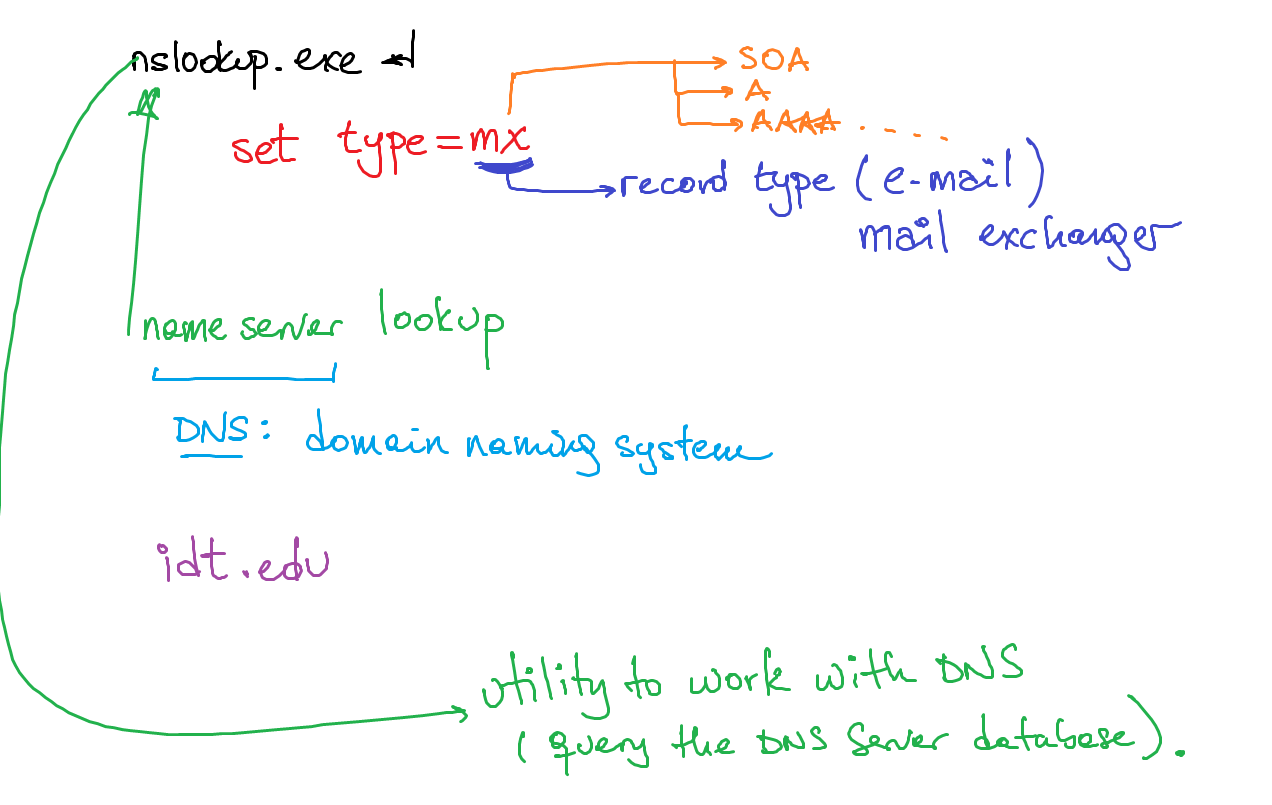 nslookup.exe ↵
SOA
A
AAAA . . . . .
set type=mx
record type (e-mail)
mail exchanger
name server lookup
DNS: domain naming system
idt.edu
utility to work with DNS
(query the DNS Server database).